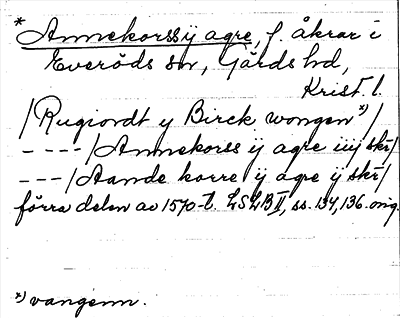 * Annekorss ij agre, f. åkrar i
Everöds sn, Gärds hd,
Krist. l.
/Rugiordt y Birck wongen *)/
----/Annekorss ij agre iiij skr/
---/Aande korre ij agre ij skr/
förra delen av 1570-t. LSLB II, ss. 134, 136. orig.
*) vangenn.